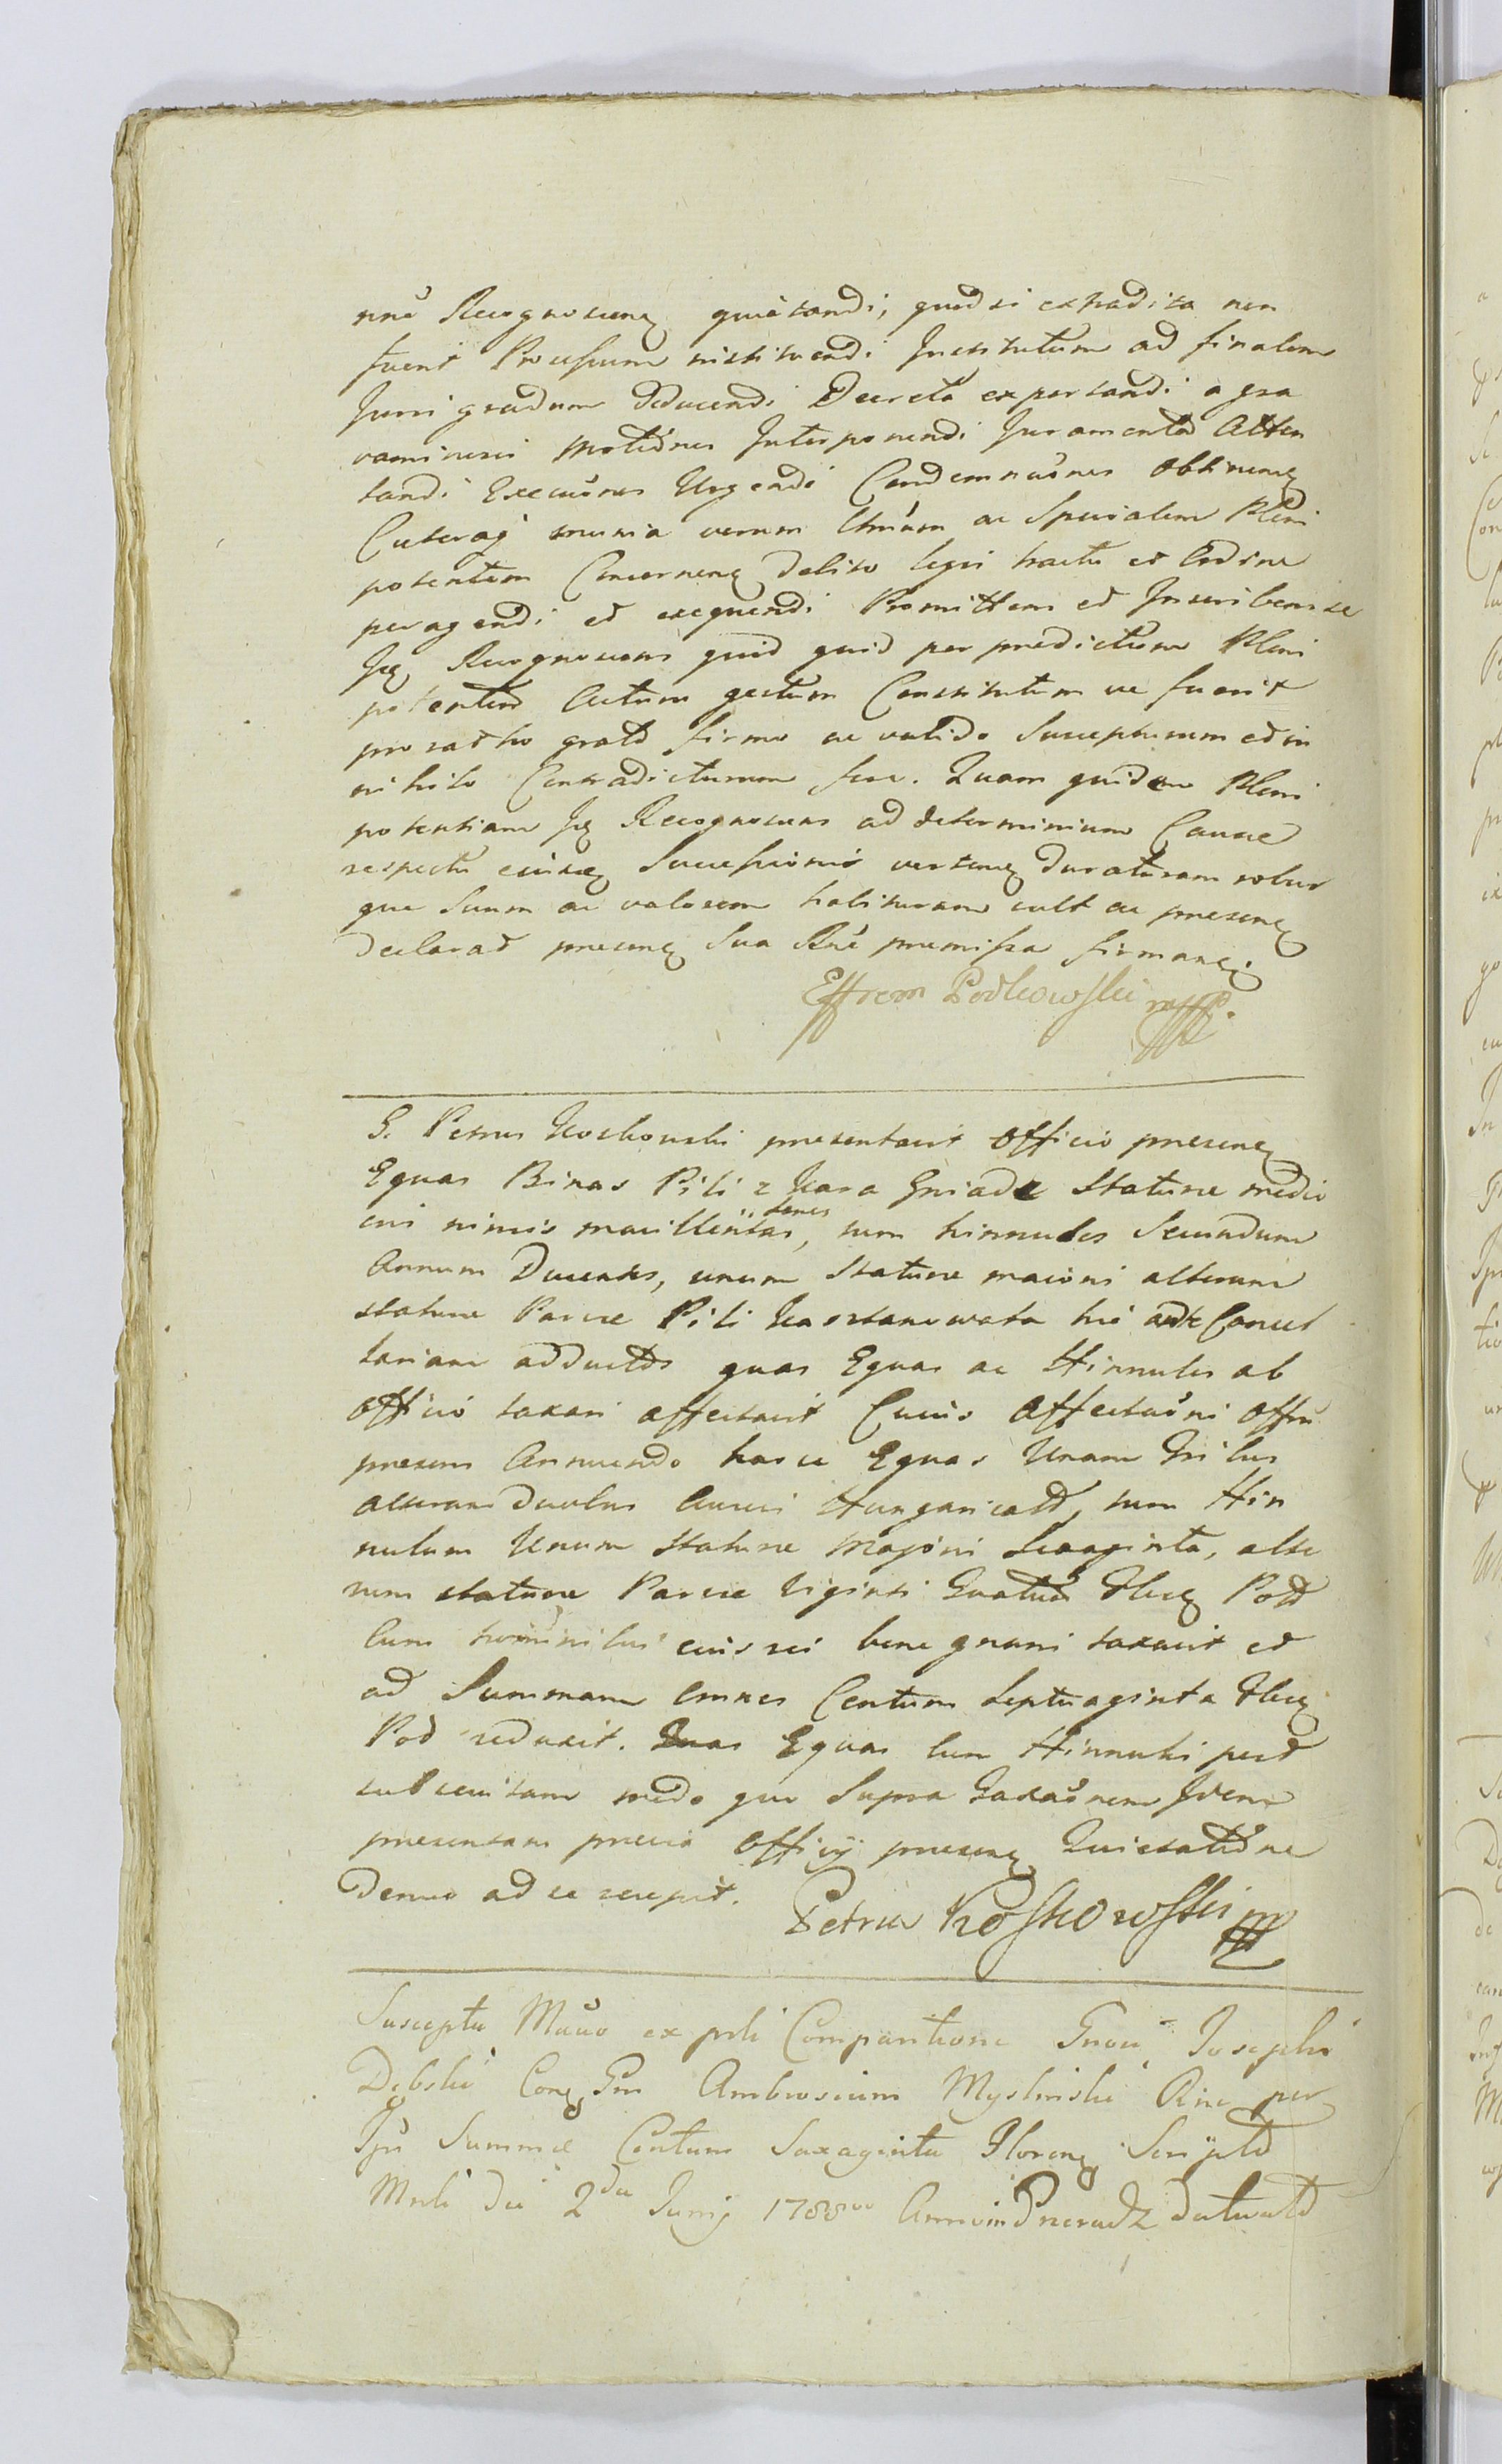 nne Recognoscen quietandi, quod si extradita non
fuerit Processum instituendi Institutum ad finalem
Juris gradum deducendi Decreta exportandi a gra
vaminesis Motiones Interponendi Juramenta Atten
tandi Execuones Urgendi Condemnaones obtinen
Caeteraq munia verum Ltmum ac Specialem Pleni
potentem Concernen debito legis tractu et Ordine
peragendi et exequendi Promittens et Inscribens se
Recognoscens quid quid per predictum Pleni
potentem Actum gestum Constitutum ve fuerit
pro rato grato firmo ac valido Suscepturum et in
nihilo Contradicturum fore. Quam quidem Pleni
potentiam Recognoscens ad determinium Causae
respectu eiusd Successionis vertens duraturam robur
que Suum ac valorem habituram vult ac presen
declarat presen Sua premissa firman.
Effrem Podkowski mpp.
G. Petrus Koskowski presentavit Officio presen
Equas Binas Pili z Kara Gniade Stature medio
cris nimis macillentas, tum hinnulos Secundum
Annum Ducentes, unum Stature maioris alterum
stature Parve Pili Kasztanowata hic ad Cancel
lariam adductos quas Equas ac Hinnulos ab
Officio taxari affectavit Cuius Affectaoni Offm
presens Annuendo hasce Equas Unam Tribus
alteram duobus Aureis Hungarical, tum Hin
nulum Unum Stature Majoris Sexaginta, alte
rum stature Parve Viginti Quatuor Flen Pol
Cum hominibus eius rei bene gnaris taxavit et
ad Summam omnes Centum Septuaginta Flen
Pol reduxit. Quas Equas cum Hinnulis post
subsecutam modo quo Supra Taxaonem Idem
presentans previa Officij presen Quietatione
denuo ad se recepit.
Petrus Koskowski mp
Suscepta Mano ex prli Comparitione Gnosi Josephi
Dębski Con Gm Ambrosium Myslinski Rine per
Ips Summae Centum Sexaginta Floren Scripto
Mnli die 2da Junij 1788vo Anno in Preradz datuato